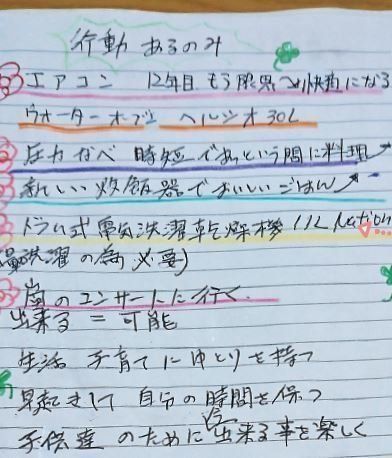 行動 あるのみ
エアコン 12年目 もう限界→快適になる
ウォーターオーブン ヘルシオ30L
圧力なべ 時短であっという間に料理
新しい炊飯器でおいしいごはん
ドラム式電気洗濯乾燥機 11L Action
洗濯の為必要)
嵐のコンサートに行く
出来る = 可能
生活 子育てにゆとりを持つ
早起きして 自分の時間を保つ
子供達 のために 出来る事を楽しく